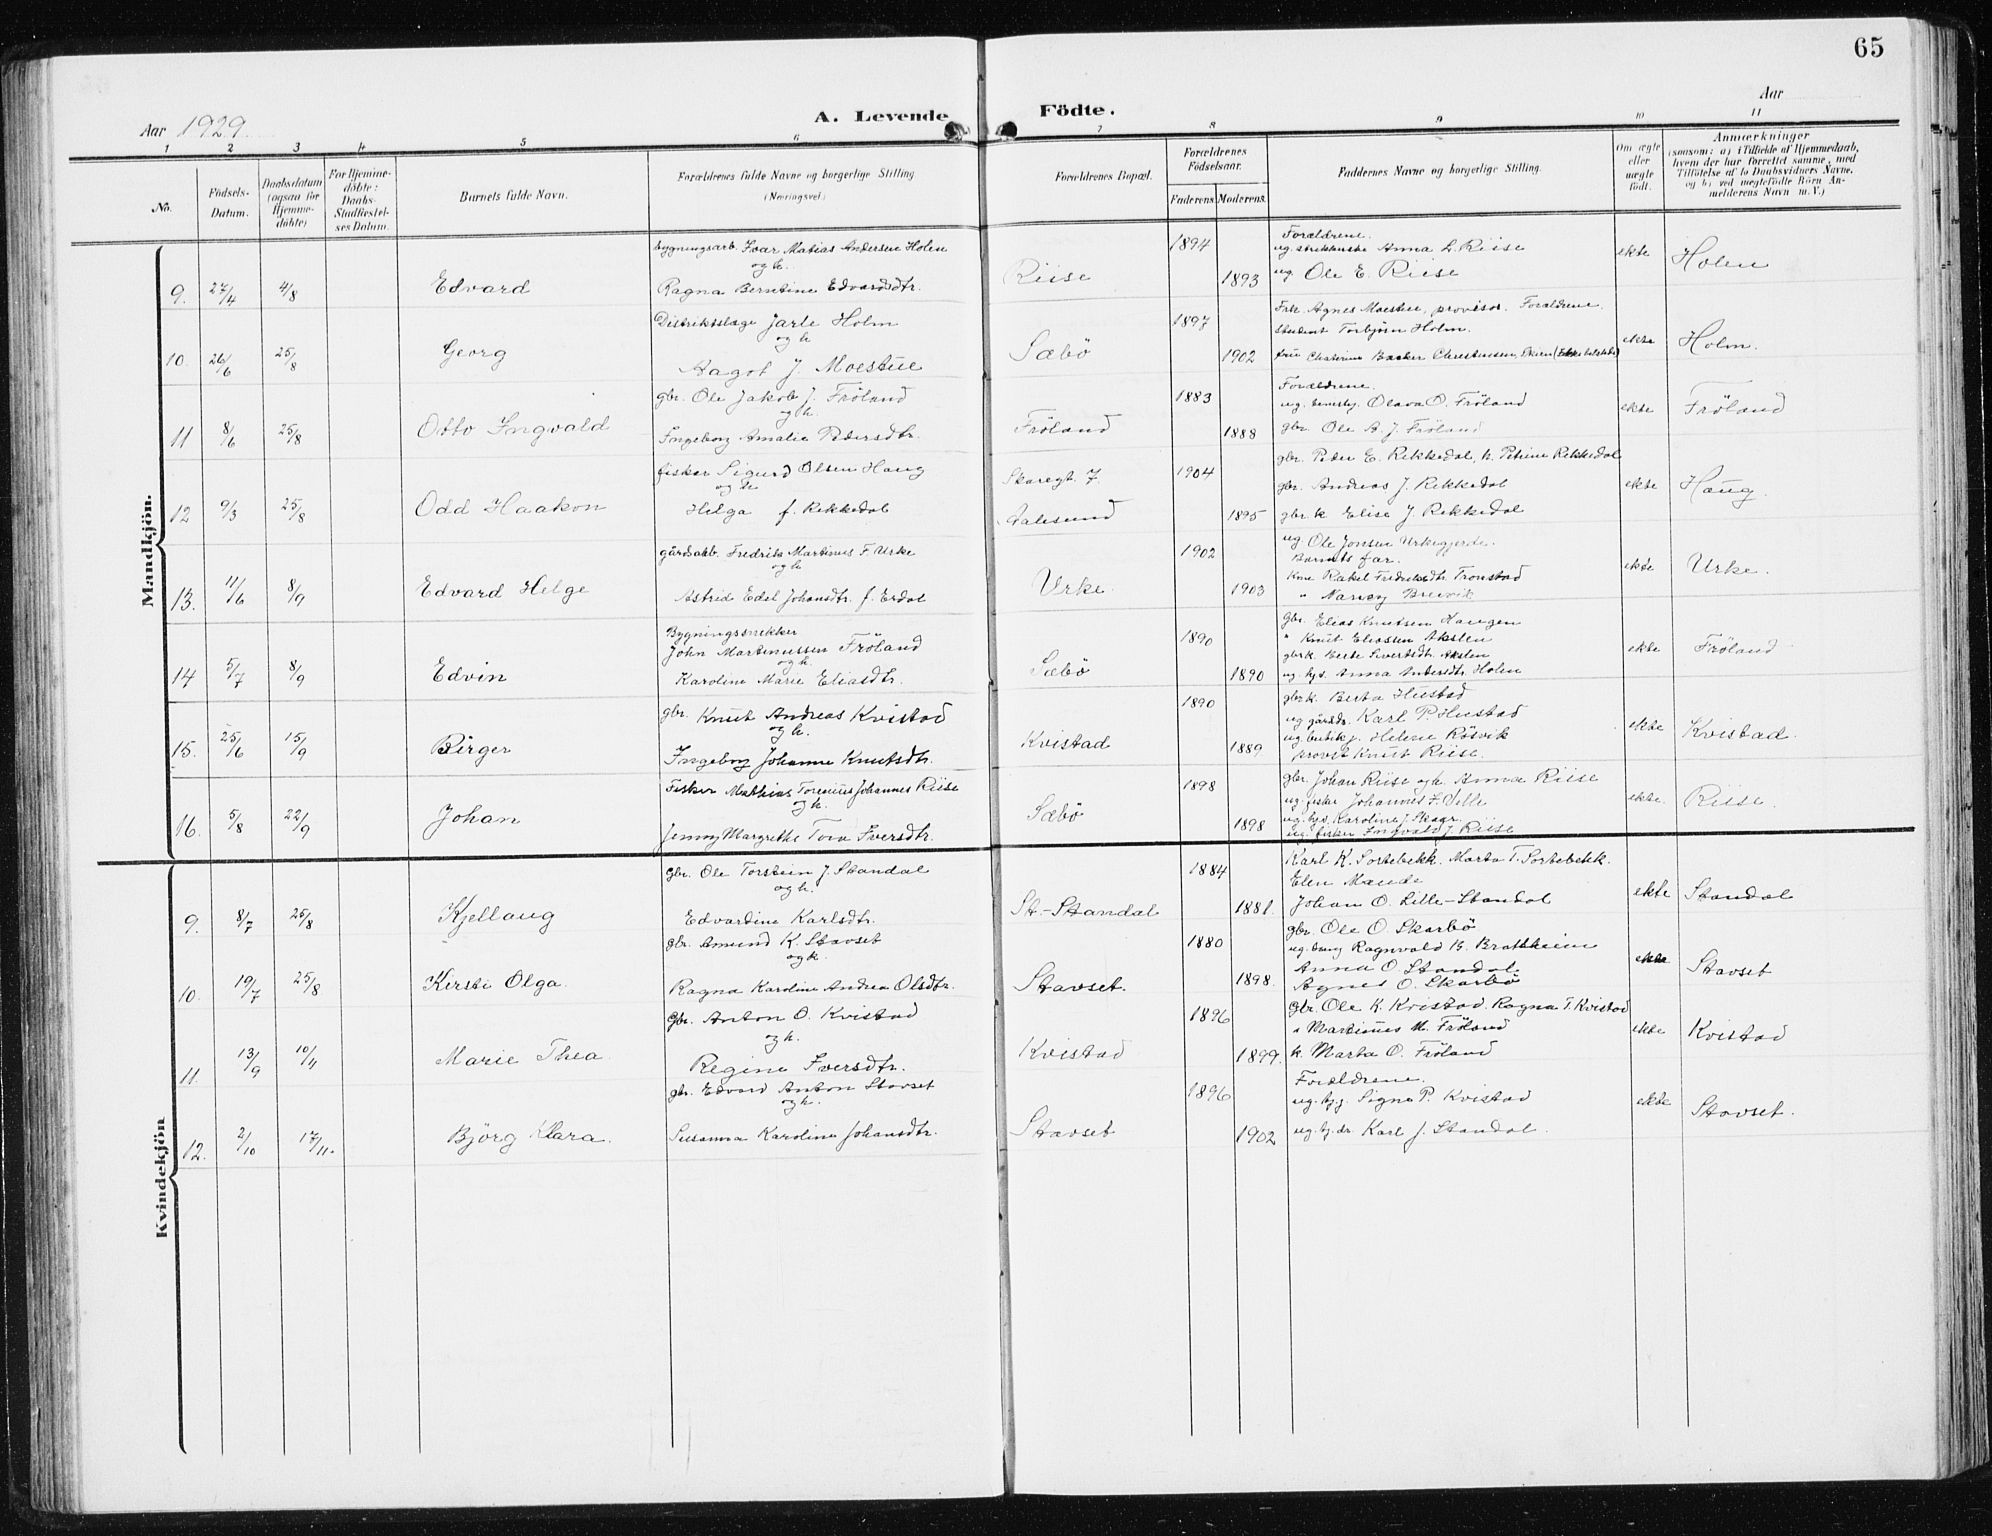 65
Aar 1929.
A. Levende Födte.
Aar
1 2 3 4 5 6 7 8 9 10 11
No.
Födsels-Datum.
Daabsdatum (ogsaa for Hjemme-döbte)
For Hjemme-döbte: Daabs-Stadfæstel-ses Datum.
Barnets fulde Navn.
Forældrenes fulde Navne og borgerlige Stilling (Næringsvei)
Forældrenes Bopæl.
Forældrenes Födselsaar.
Faderens. Moderens.
Faddernes Navne og borgerlige Stilling.
Om ægte eller uægte födt.
Anmærkninger
(saasom: a) i Tilfælde af Hjemmedaab, hvem der har forrettet samme, med Tilföielse af to Daabsvidners Navne, og b) ved uægtefödte Börn An-melderens Navn m. V.)
Mandkjön.
9. 27/4 4/8 Edvard
bygningsarb. Ivar Matias Andersen Holen
og h.
Ragna Berntine Edvardsdtr.
Riise 1894 1893
Forældrene.
ug. Anna L. Riise
ug. Ole E. Riise
ekte Holen
10. 26/6 25/8 Georg
Distriktslæge Jarle Holm
og h.
Aagot J. Moestue
Sæbö 1897 1902
Frk. Agnes Moestue, provisor. Forældrene.
Student Torbjörn Holm.
fru Backer Christensen, Skien
ekte Holm.
11 8/6 25/8 Otto Ingvald
gbr. Ole Jakob J. Fröland
og h.
Ingeborg Amalie Pedersdtr.
Fröland 1883 1888
Forældrene.
ug. Olava O. Fröland
gbr. Ole A. J. Fröland
ekte Fröland
12 9/3 25/8 Odd Haakon
fisker Sigurd Olsen Haug
og h.
Helga f. Rekkedal
Skaregt. 7
Aalesund 1904 1895
gbr. Peder E. Rekkedal, h. Petrine Rekkedal
gbr. Andreas J. Rekkedal
gbr k Elise J. Rekkedal
ekte Haug.
13. 11/6 8/9 Edvard Helge
gårdsarb. Fredrik Martinus F. Urke
og h.
Astrid Edel Johansdtr. f. Erdal
Urke. 1902 1903
ug. Ole Jonsen Urkegjerde.
Barnets far.
Kone Rakel Fredriksdtr. Tronstad
" Nancy Brevik
ekte Urke.
14 5/7 8/9 Edvin
Bygningssnekker
John Martinussen Fröland
og h.
Karoline Marie Eliasdtr.
Sæbö 1890 1890
gbr. Elias Knutsen Haugen
" Knut Eliassen Akslen
gbrk. Sivertsdtr. Akslen
ug. hjs. Anna Andersdtr. Holen
ekte Fröland
15. 25/6 15/9 Birger
gbr. Knut Andreas Kvistad
og h.
Ingeborg Johanne Knutsdtr.
Kvistad 1890 1889
gbrk. Berta Hustad
ug gårddr. Karl P. Hustad
ug. butikj. Helene Rösvik
Knut Riise.
ekte Kvistad.
16. 5/8 22/9 Johan
Fisker Mathias Johannes Riise
og h.
Jenny Margrethe Tora Iversdtr.
Sæbö 1898 1898
gbr. Johan Riise og h. Anna Riise
ug. fisker Johannes J. Velle
ug. hjs. Karoline J. Skagr.
ug. fisker Ingvald J. Riise
ekte. Riise.
Kvindekjön
9. 8/7 25/8 Kjellaug
gbr. Ole Torstein J. Standal
og h.
Edvardine Karlsdtr.
St-Standal 1884 1881.
Karl K. Sortebekk. Marta T. Sortebekk.
Elen Maude
Johan O. Lille-Standal
ekte Standal
10. 19/7 25/8 Kirsti Olga.
gbr. Amund K. Stavset
og h.
Ragna Karoline Andrea Olsdtr.
Stavset. 1880 1898.
gbr. Ole O. Skarbö
ug. Ragnvald B. Brattheim
Anna O. Standal
Agnes O. Skarbö
ekte Stavset
11. 13/9 10/4 Marie Thea.
Gbr. Anton O. Kvistad
og h.
Regine Iversdtr.
Kvistad 1896 1899.
gbr. Ole K. Kvistad. Ragna T. Kvistad
" Martinus M. Fröland
k. Marta O. Fröland
ekte Kvistad
12. 2/10 17/11. Björg Klara.
gbr. Edvard Anton Stavset
og h.
Susanna Karoline Johansdtr.
Stavset 1896 1902
Forældrene.
ug. hjg. Signe P. Kvistad
ug. hj. dr. Karl J. Standal.
ekte Stavset.